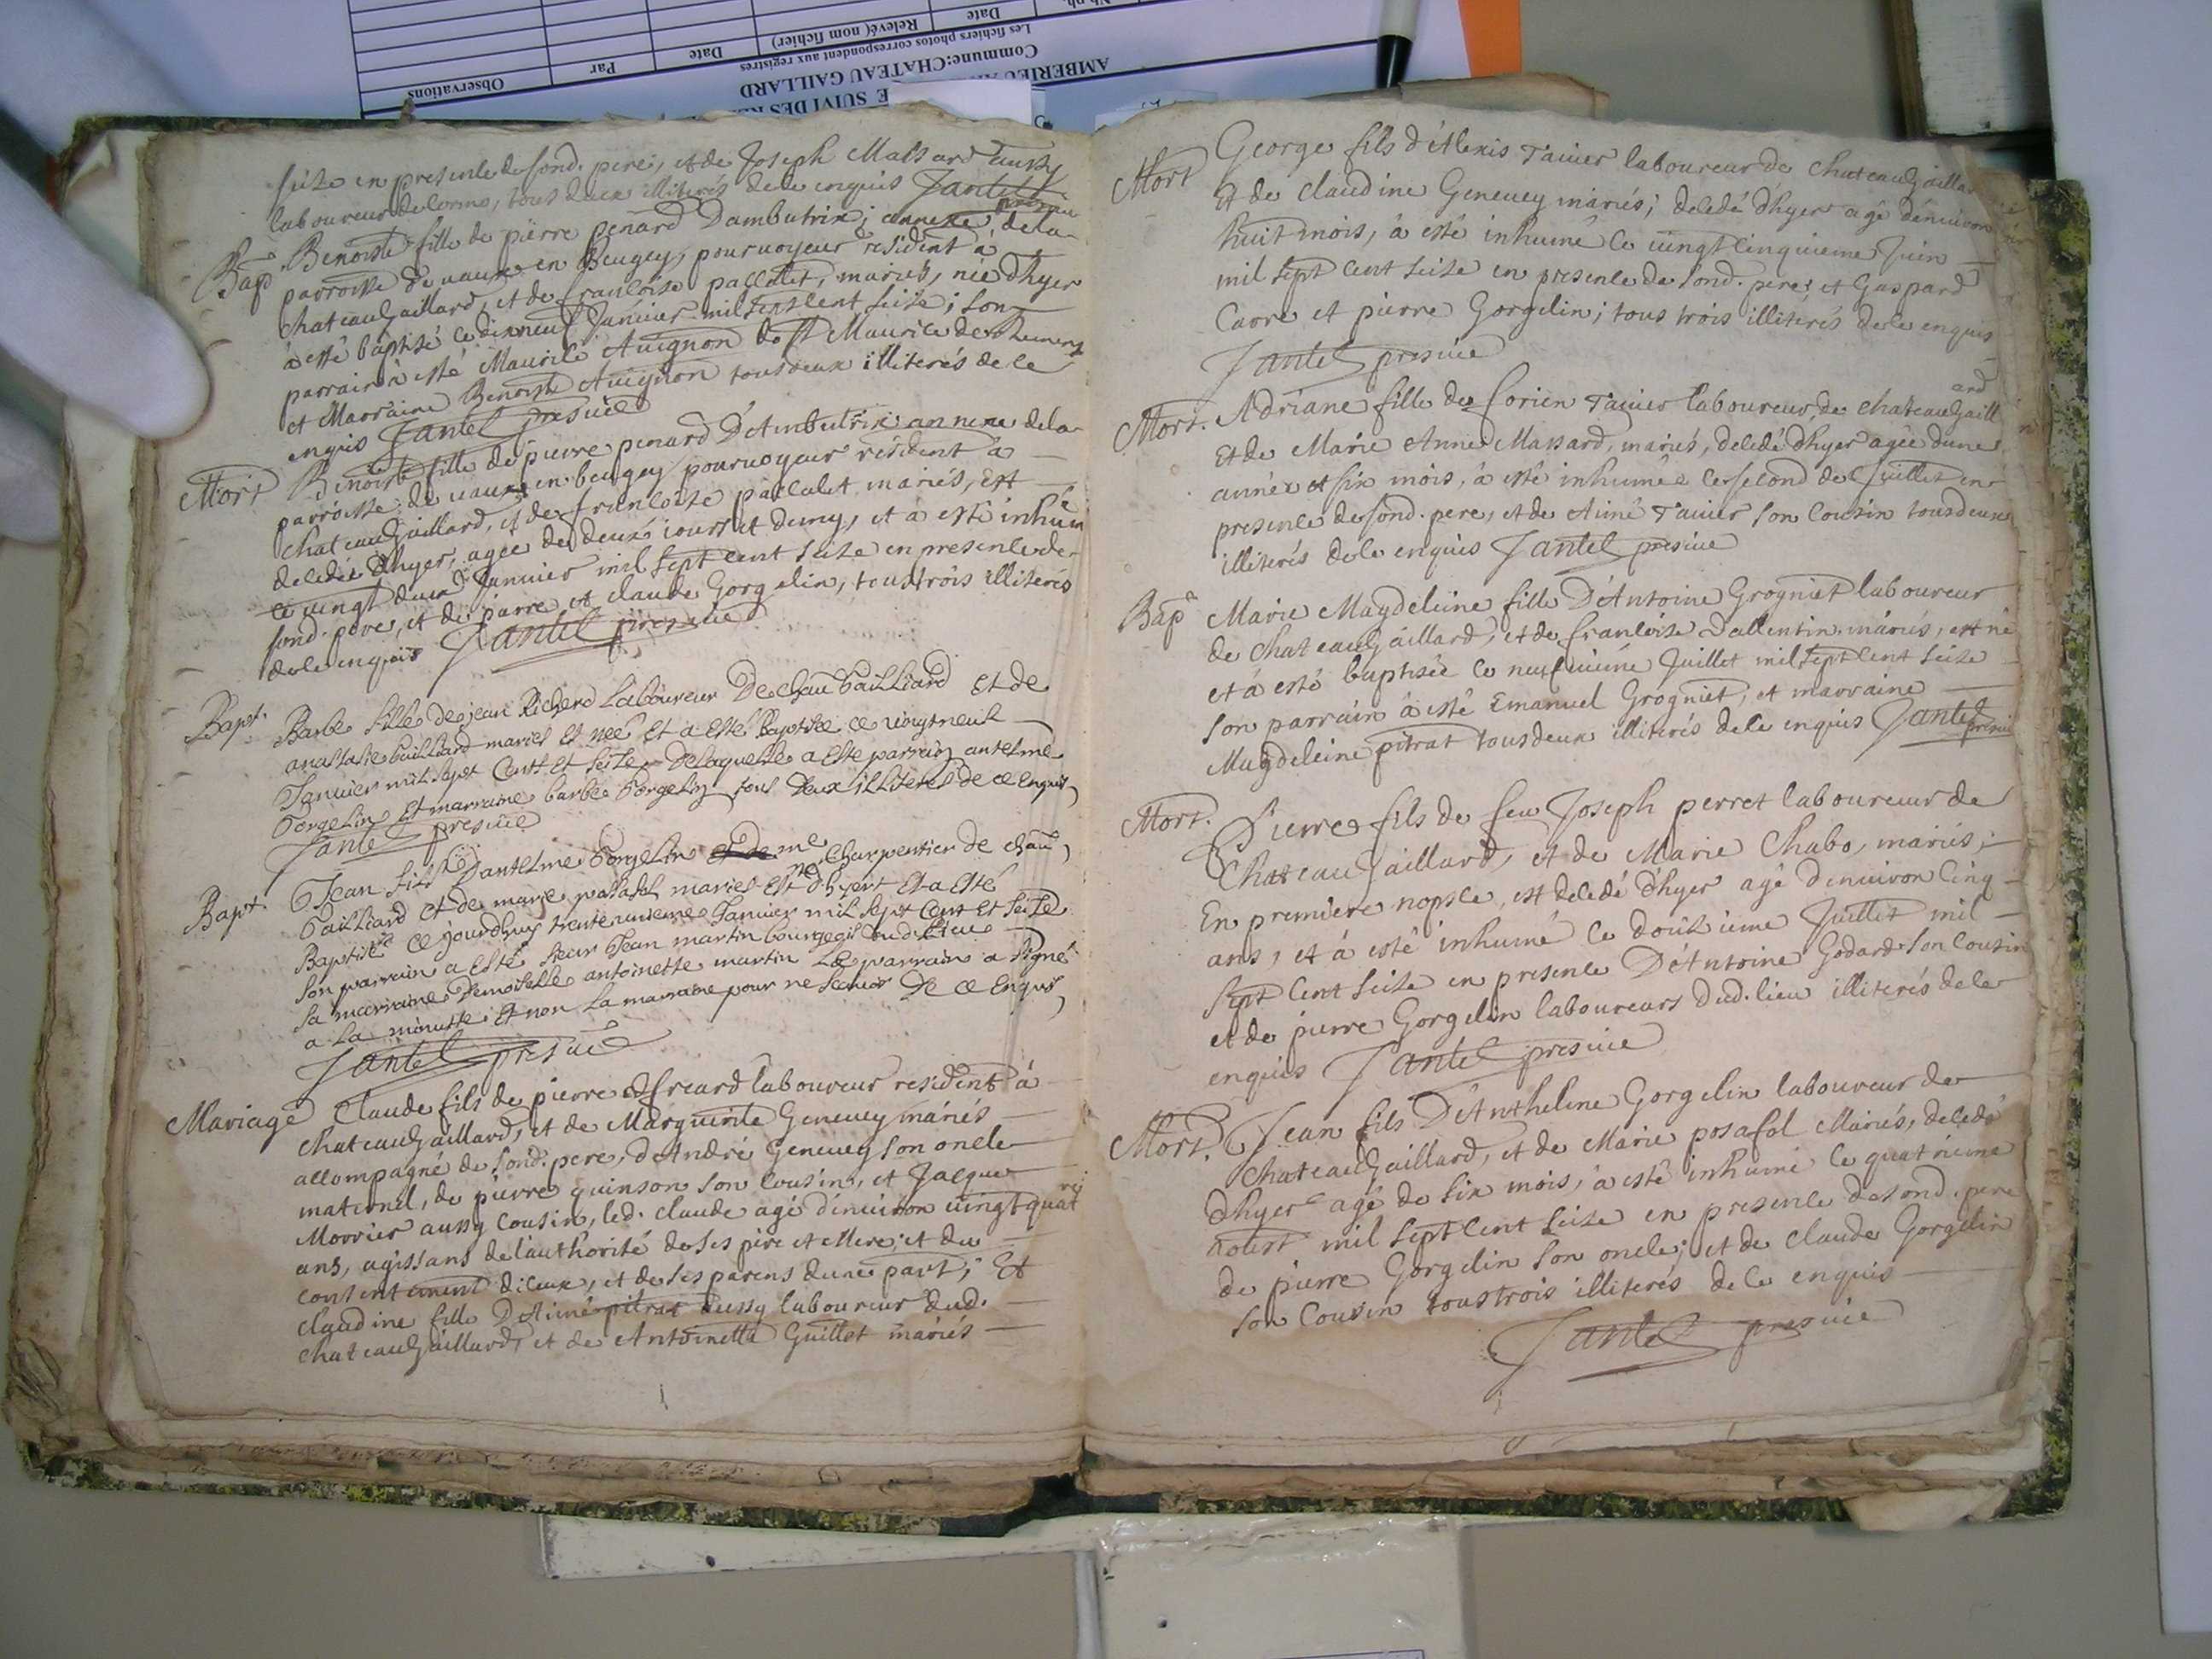 Observations
Par
Date
Relevé( nom fichier)
Date
Les fichiers photos correspondent aux registres
Commune:CHATEAU GAILLARD
AMBERIEU
E SUIVI DES RE
seize en presence de sond. pere, et de Joseph Massard aussy
laboureur de Cormo, tous deux illiterés de ce enquis Jantet
presvice
Bap. Benoiste fille de pierre penard Dambutrix; annexe de la
parroisse de vaux en Beugey, pourvoyeur resident à
chateauGaillard, et de francoise pallatet, mariés, née d'hyer
à esté baptisé ce dixneuf Janvier mil sept cent seize; son
parrain à esté Maurice Avignon de St Maurice de Remens
et Marraine Benoiste Avignon tous deux illiterés de ce
enquis Jantet presvice
Mort Benoiste fille de pierre penard D'Ambutrix annexe de la
parroisse de vaux en beugey pourvoyeur résident à
chateauGaillard, et de francoise pallatet mariés, est
decedée d'hyer, agée de deux jours et demy, et à esté inhumé
ce vingt deux Janvier mil sept cent seize en presence de
sond. pere, et de piarre et claude Gorgelin, tous trois illiterés
de ce enquis Jantet presvice
Bapt. Barbe fille de jean Richerd Laboureur De chau Gailliard et de
anastasie Gailliard mariés est neé Et a Esté Baptisée ce vingtneuf
Janvier mil sept Cent Et seize De laquelle a Este parrain antelme
Gorgelin Et marraine barbe Gorgelin tous Deux illiteres de ce Enquis
Jantet presvice
Bapt. Jean fils Dantelme Gorgelin et de me Charpentier de chau
Gailliard et de marie passafol mariés Est né d'hyert Et a Esté
Baptisé ce jourdhuy trente unieme Janvier mil sept Cent Et seize
son parrain a Esté sieur Jean martin bourgeois dud. Lieu
sa marraine Demoiselle antoinette martin Le parrain a signé
a La minutte Et non La marraine pour ne scavoir De ce Enquis
Jantet presvice
Mariage Claude fils de pierre Efreard laboureur resident à
chateauGaillard, et de Marguerite Genevey mariés
accompagné de sond. pere, d'André Genevey son oncle
maternel, de pierre quinson son cousin, et Jacque
Morrier aussy cousin, led. claude agé d'environ vingt quatre
ans, agissans de l'authorité de ses pere et Mere; et du
contentement d'iceux, et de ses parens dune part; Et
claudine fille D'Aimé pitrat aussy laboureur dud.
chateauGaillard, et de Antoinette Guillet mariés
Mort George fils d'Alexis Tavier laboureur de chateauGaillar
Et de claudine Genevey mariés; decedé d'hyer agé d'environ
huit mois, à esté inhumé ce vingt cinquieme Juin
mil sept cent seize en presence de sond. pere, et Gaspard
Carre et pierre Gorgelin; tous trois illiterés de ce enquis
Jantet presvice
Mort. Adriane fille de Corien Tavier laboureur de chateauGaill
ard
Et de Marie Anne Massard, mariés, decedé d'hyer agée dune
année et six mois, à esté inhumée ce second de Juillet en
presence de sond. pere, et de Aimé Tavier son Cousin tous deux
illiterés de ce enquis Jantet presvice
Bap. Marie Magdeleine fille D'Antoine Grogniet laboureur
de chateauGaillard, et de francoise Dallentin mariés, est né
et à esté baptisée ce neufvieme Juillet mil sept cent seize
son parrain à esté Emanuel Grogniet, et marraine
Magdeleine pitrat tous deux illiterés de ce enquis Jantet
presvice
Mort. Pierre fils de feu Joseph perret laboureur de
ChateauGaillard, et de Marie Chabo, mariés;
En premiere nopsce, est decedé d'hyer agé d'environ cinq
ans, et à esté inhumé ce douzieme Juillet mil
sept cent seize en presence D'Antoine Godard son cousin
et de pierre Gorgelin laboureurs dud. lieu illiterés de ce
enquis Jantet presvice
Mort. Jean fils D'Anthelme Gorgelin laboureur de
chateauGaillard, et de Marie posafol Mariés, decedé
d'hyer agé de six mois, à esté inhumé ce quatrieme
aoust mil sept cent seize en presence de sond. pere
de pierre Gorgelin son oncle; et de claude Gorgelin
son Cousin tous trois illiterés de ce enquis
Jantet presvice